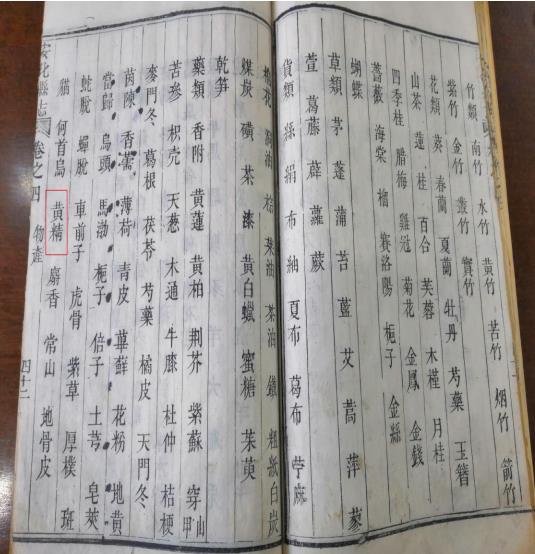 竹類 南竹 水竹 黄竹 苦竹 烟竹 箭竹
紫竹 金竹 叢竹 實竹
花類 葵 春蘭 夏蘭 牡丹 芍藥 玉簪
山茶 蓮 桂 百合 芙蓉 木槿 月桂
四季桂 臘梅 雞冠 菊花 金鳳 金錢
薔薇 海棠 榴 賽洛陽 梔子 金絲
蝴蝶
草類 茅 蓬 蒲 苔 藍 艾 蒿 萍 蓼
萱 葛藤 薜蘿 蕨
貨類 絲 絹 布 紬 夏布 葛布 苧麻
棉花 洞油 棕 菜油 茶油 鐵 粗紙 白炭
煤炭 磺 茶 漆 黄白蠟 蜜糖 茱萸
乾笋
藥類 香附 黄蓮 黄柏 荆芥 紫蘇 穿山甲
苦參 枳壳 天葱 木通 牛膝 杜仲 桔梗
麥門冬 葛根 茯苓 芍藥 橘皮 天門冬
茵陳 香薷 薄荷 青皮 萆薢 花粉 地黄
當歸 烏頭 馬渤 梔子 倍子 土芎 皂莢
蛇脫 蟬脫 車前子 虎骨 紫草 厚樸 斑
猫 何首烏 黄精 麝香 常山 地骨皮
安化縣志 卷之四 物產 四十二